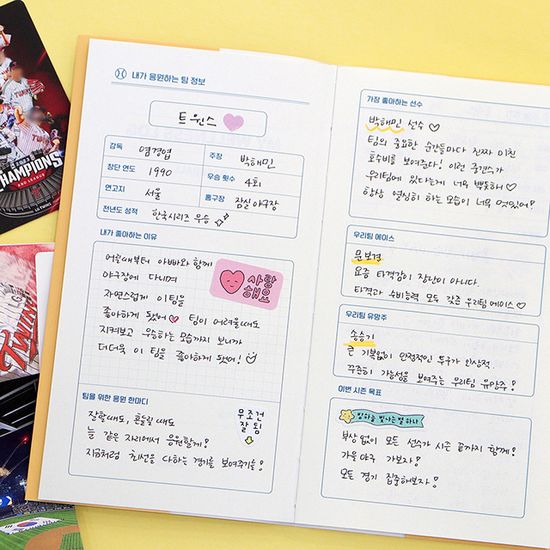 내가 응원하는 팀 정보
트윈스
감독 염경엽 주장 박해민
창단 연도 1990 우승 횟수 4회
연고지 서울 홈구장 잠실야구장
전년도 성적 한국시리즈 우승
내가 좋아하는 이유
어릴때부터 아빠와 함께
야구장에 다니며
자연스럽게 이 팀을
좋아하게 됐어 팀이 어려울때도
지켜보고 우승하는 모습까지 보니까
더더욱 이 팀을 좋아하게 됐어!
사랑
해요
팀을 위한 응원 한마디
잘할때도, 흔들릴 때도
늘 같은 자리에서 응원할게!
지금처럼 최선을 다하는 경기를 보여주기를!
무조건
잘 됨
가장 좋아하는 선수
박해민 선수
팀의 중요한 순간들마다 진짜 미친
호수비를 보여준다! 이런 중견수가
우리팀에 있다는게 너무 뿌듯해
항상 열심히 하는 모습이 너무 멋있어!
우리팀 에이스
문보경
요즘 타격감이 장난이 아니다.
타격과 수비능력 모두 갖춘 우리팀 에이스
우리팀 유망주
송승기
큰 기복없이 안정적인 투구가 인상적.
꾸준히 가능성을 보여주는 우리팀 유망주!
이번 시즌 목표
부상 없이 모든 선수가 시즌 끝까지 함께!
가을 야구 가보자!
모든 경기 집중해보자!
CHAMPIONS